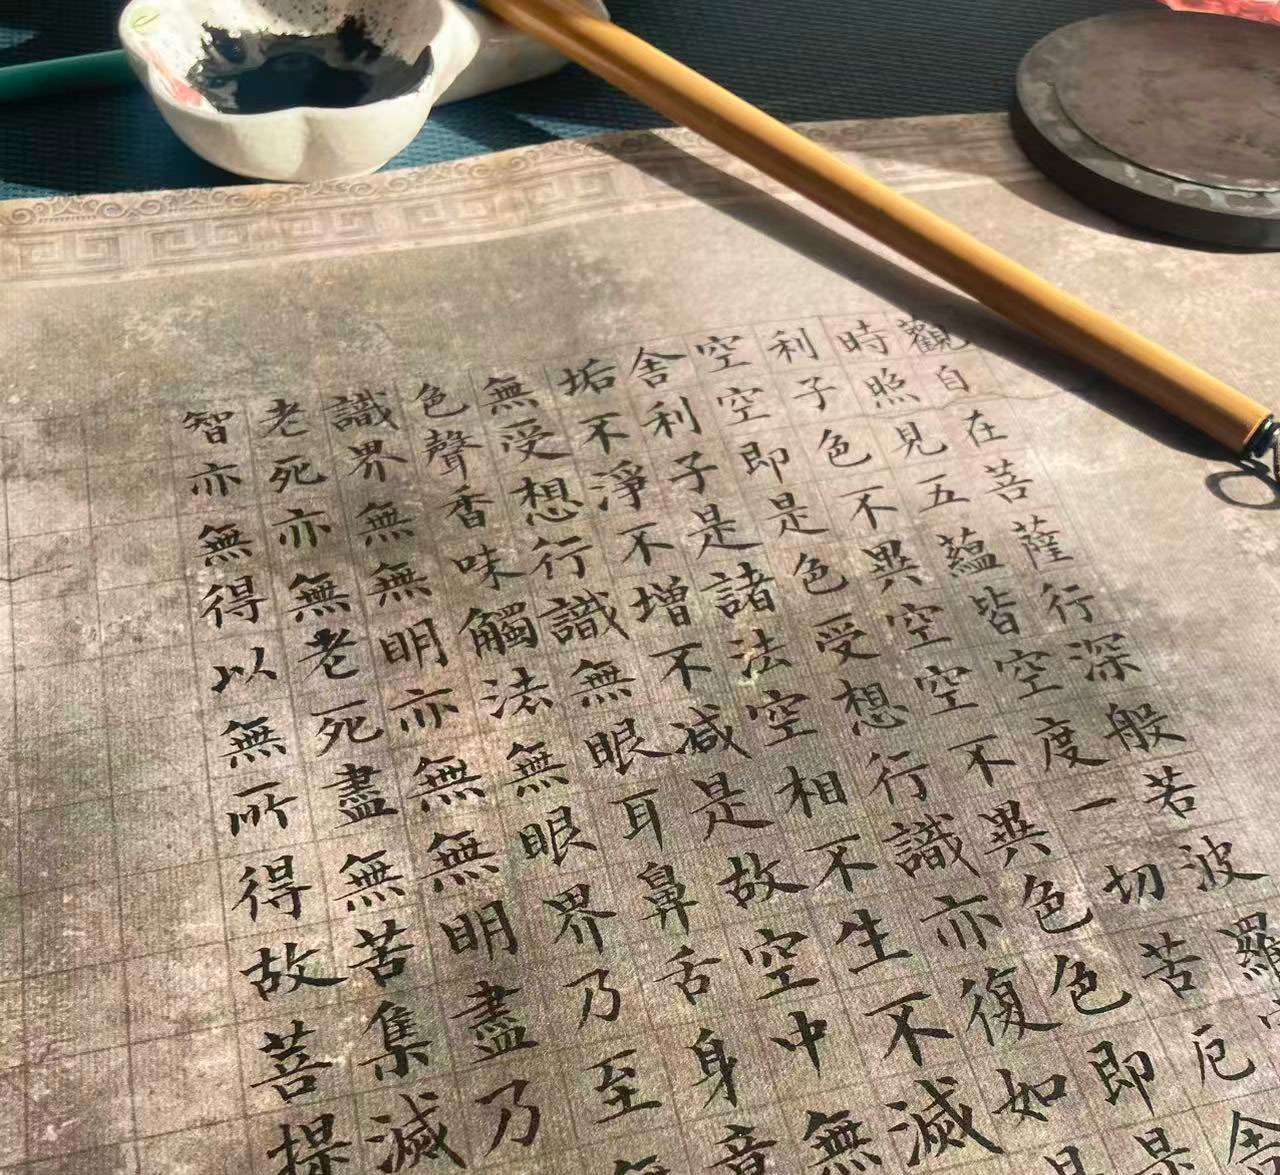 觀自在菩薩行深般若波羅
時照見五蘊皆空度一切苦厄舍
利子色不異空空不異色色即是
空空即是色受想行識亦復如是
舍利子是諸法空相不生不滅
垢不淨不增不减是故空中無
無受想行識無眼耳鼻舌身意
色聲香味觸法無眼界乃至無
識界無無明亦無無明盡乃
老死亦無老死盡無苦集滅
智亦無得以無所得故菩提